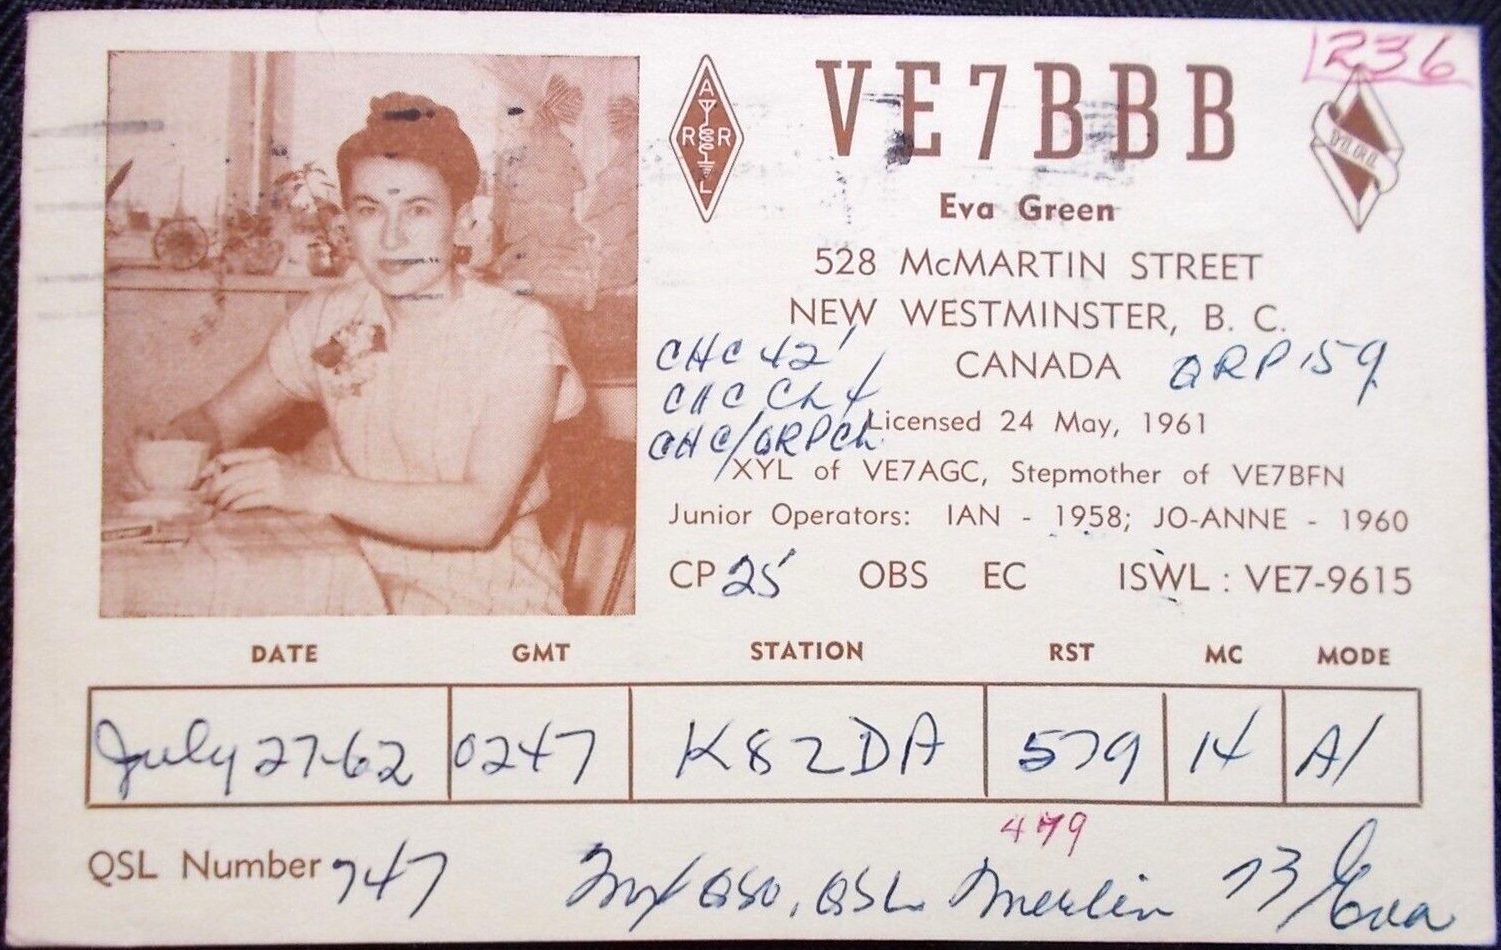 1236
A
R R
L
VE7BBB
Eva Green
528 McMARTIN STREET
NEW WESTMINSTER, B. C.
CHC 42
CANADA
QRP 159
CHC Ch 4
Licensed 24 May, 1961
CHC/QRPCh
XYL of VE7AGC, Stepmother of VE7BFN
Junior Operators: IAN - 1958; JO-ANNE - 1960
CP 25 OBS EC ISWL : VE7-9615
DATE GMT STATION RST MC MODE
July 27-62 0247 K8ZDA 579 14 A1
479
QSL Number 747
QSO, QSL Merlin 73/Eva